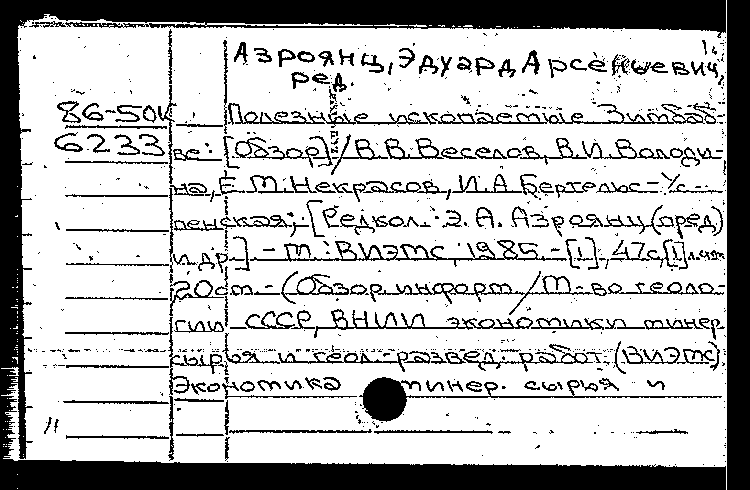 1.
Азроянц, Эдуард Арсеньевич,
ред.
86-50к Полезные ископаемые Зимбаб-
6233 ве: [Обзор] / В.В. Веселов, В.И. Володи-
на, Е.М. Некрасов, И.А. Бертельс-Ус-
пенская; [Редкол.: Э.А. Азроянц (пред)
и др.] - М.: ВИЭМС, 1985. - [1], 47 с., [1] л. ил.
20см. - (Обзор. информ. / М-во геоло-
гии СССР, ВНИИ экономики минер
сырья и геол.-развед. работ (ВИЭМС)
Экономика минер. сырья и
11